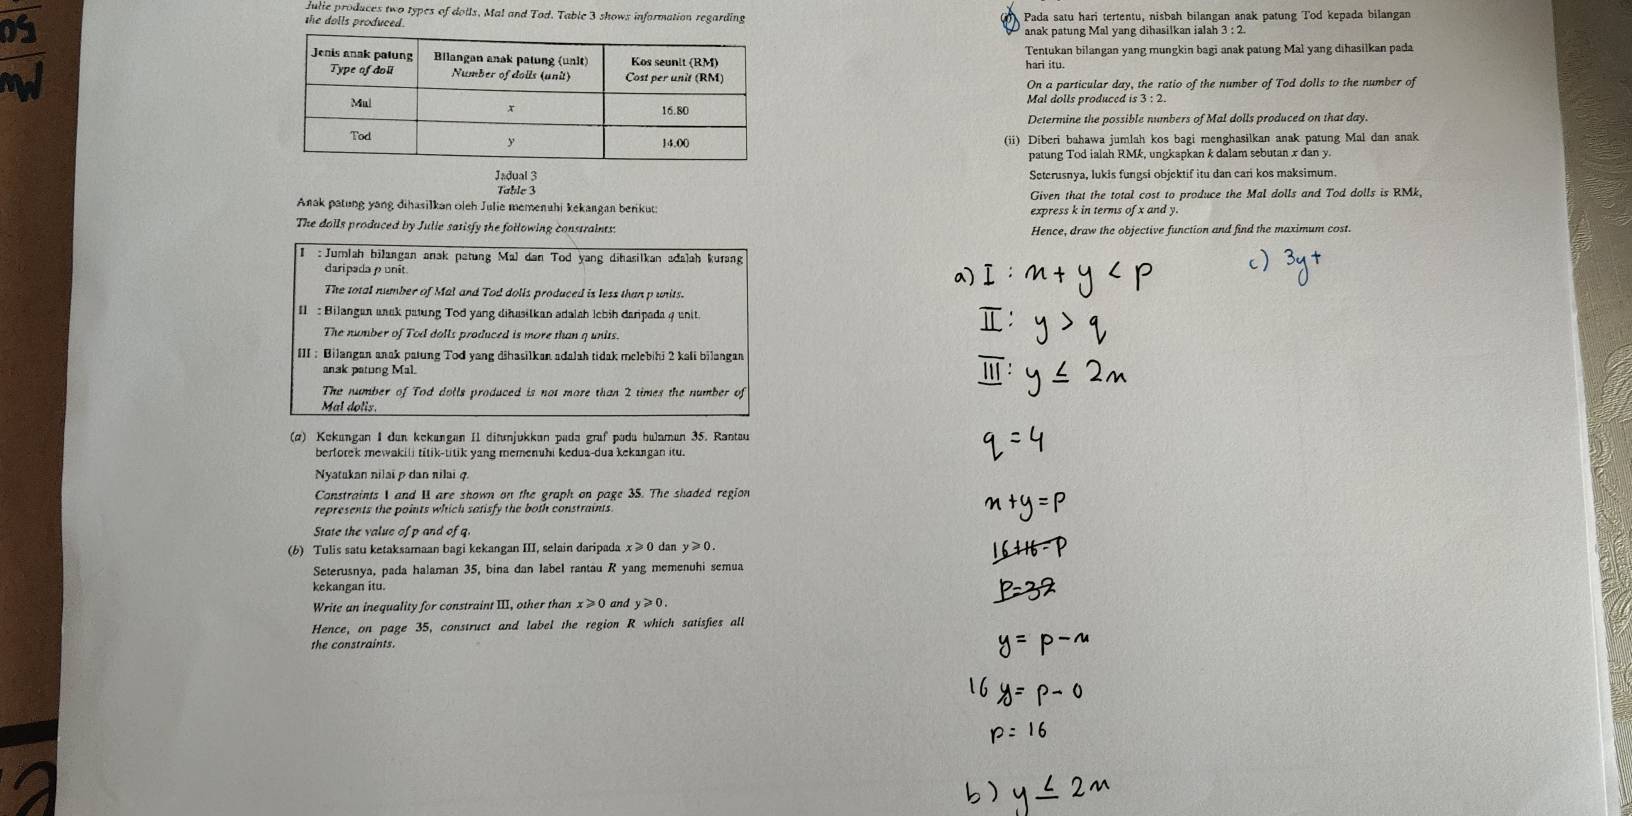 Julie produces two types of dolls, Mal and Tod. Table 3 shows information regarding
the dolls produced.
Jenis anak patung Bilangan anak patung (unit) Kos seunit (RM)
Type of doll Number of dolls (unit) Cost per unit (RM)
Mal x 16.80
Tod y 14.00
Jadual 3
Table 3
Anak patung yang dihasilkan oleh Julie memenuhi kekangan berikut:
The dolls produced by Julie satisfy the following constraints:
I : Jumlah bilangan anak patung Mal dan Tod yang dihasilkan adalah kurang
daripada p unit.
The total number of Mal and Tod dolls produced is less than p units.
II : Bilangan anak patung Tod yang dihasilkan adalah lebih daripada q unit.
The number of Tod dolls produced is more than q units.
III : Bilangan anak patung Tod yang dihasilkan adalah tidak melebihi 2 kali bilangan
anak patung Mal.
The number of Tod dolls produced is not more than 2 times the number of
Mal dolls.
(a) Kekangan I dan kekangan II ditunjukkan pada graf pada halaman 35. Rantau
berlorek mewakili titik-titik yang memenuhi kedua-dua kekangan itu.
Nyatakan nilai p dan nilai q.
Constraints I and II are shown on the graph on page 35. The shaded region
represents the points which satisfy the both constraints.
State the value of p and of q.
(b) Tulis satu ketaksamaan bagi kekangan III, selain daripada x ⩾ 0 dan y ⩾ 0.
Seterusnya, pada halaman 35, bina dan label rantau R yang memenuhi semua
kekangan itu.
Write an inequality for constraint III, other than x ⩾ 0 and y ⩾ 0.
Hence, on page 35, construct and label the region R which satisfies all
the constraints.
Pada satu hari tertentu, nisbah bilangan anak patung Tod kepada bilangan
anak patung Mal yang dihasilkan ialah 3 : 2.
Tentukan bilangan yang mungkin bagi anak patung Mal yang dihasilkan pada
hari itu.
On a particular day, the ratio of the number of Tod dolls to the number of
Mal dolls produced is 3 : 2.
Determine the possible numbers of Mal dolls produced on that day.
(ii) Diberi bahawa jumlah kos bagi menghasilkan anak patung Mal dan anak
patung Tod ialah RMk, ungkapkan k dalam sebutan x dan y.
Seterusnya, lukis fungsi objektif itu dan cari kos maksimum.
Given that the total cost to produce the Mal dolls and Tod dolls is RMk,
express k in terms of x and y.
Hence, draw the objective function and find the maximum cost.
a) I : x + y < p
c) 3y +
II : y > q
III : y ≤ 2x
q = 4
x + y = p
16 + 16 = p
p = 32
y = p - x
16 y = p - 0
p = 16
b) y ≤ 2x